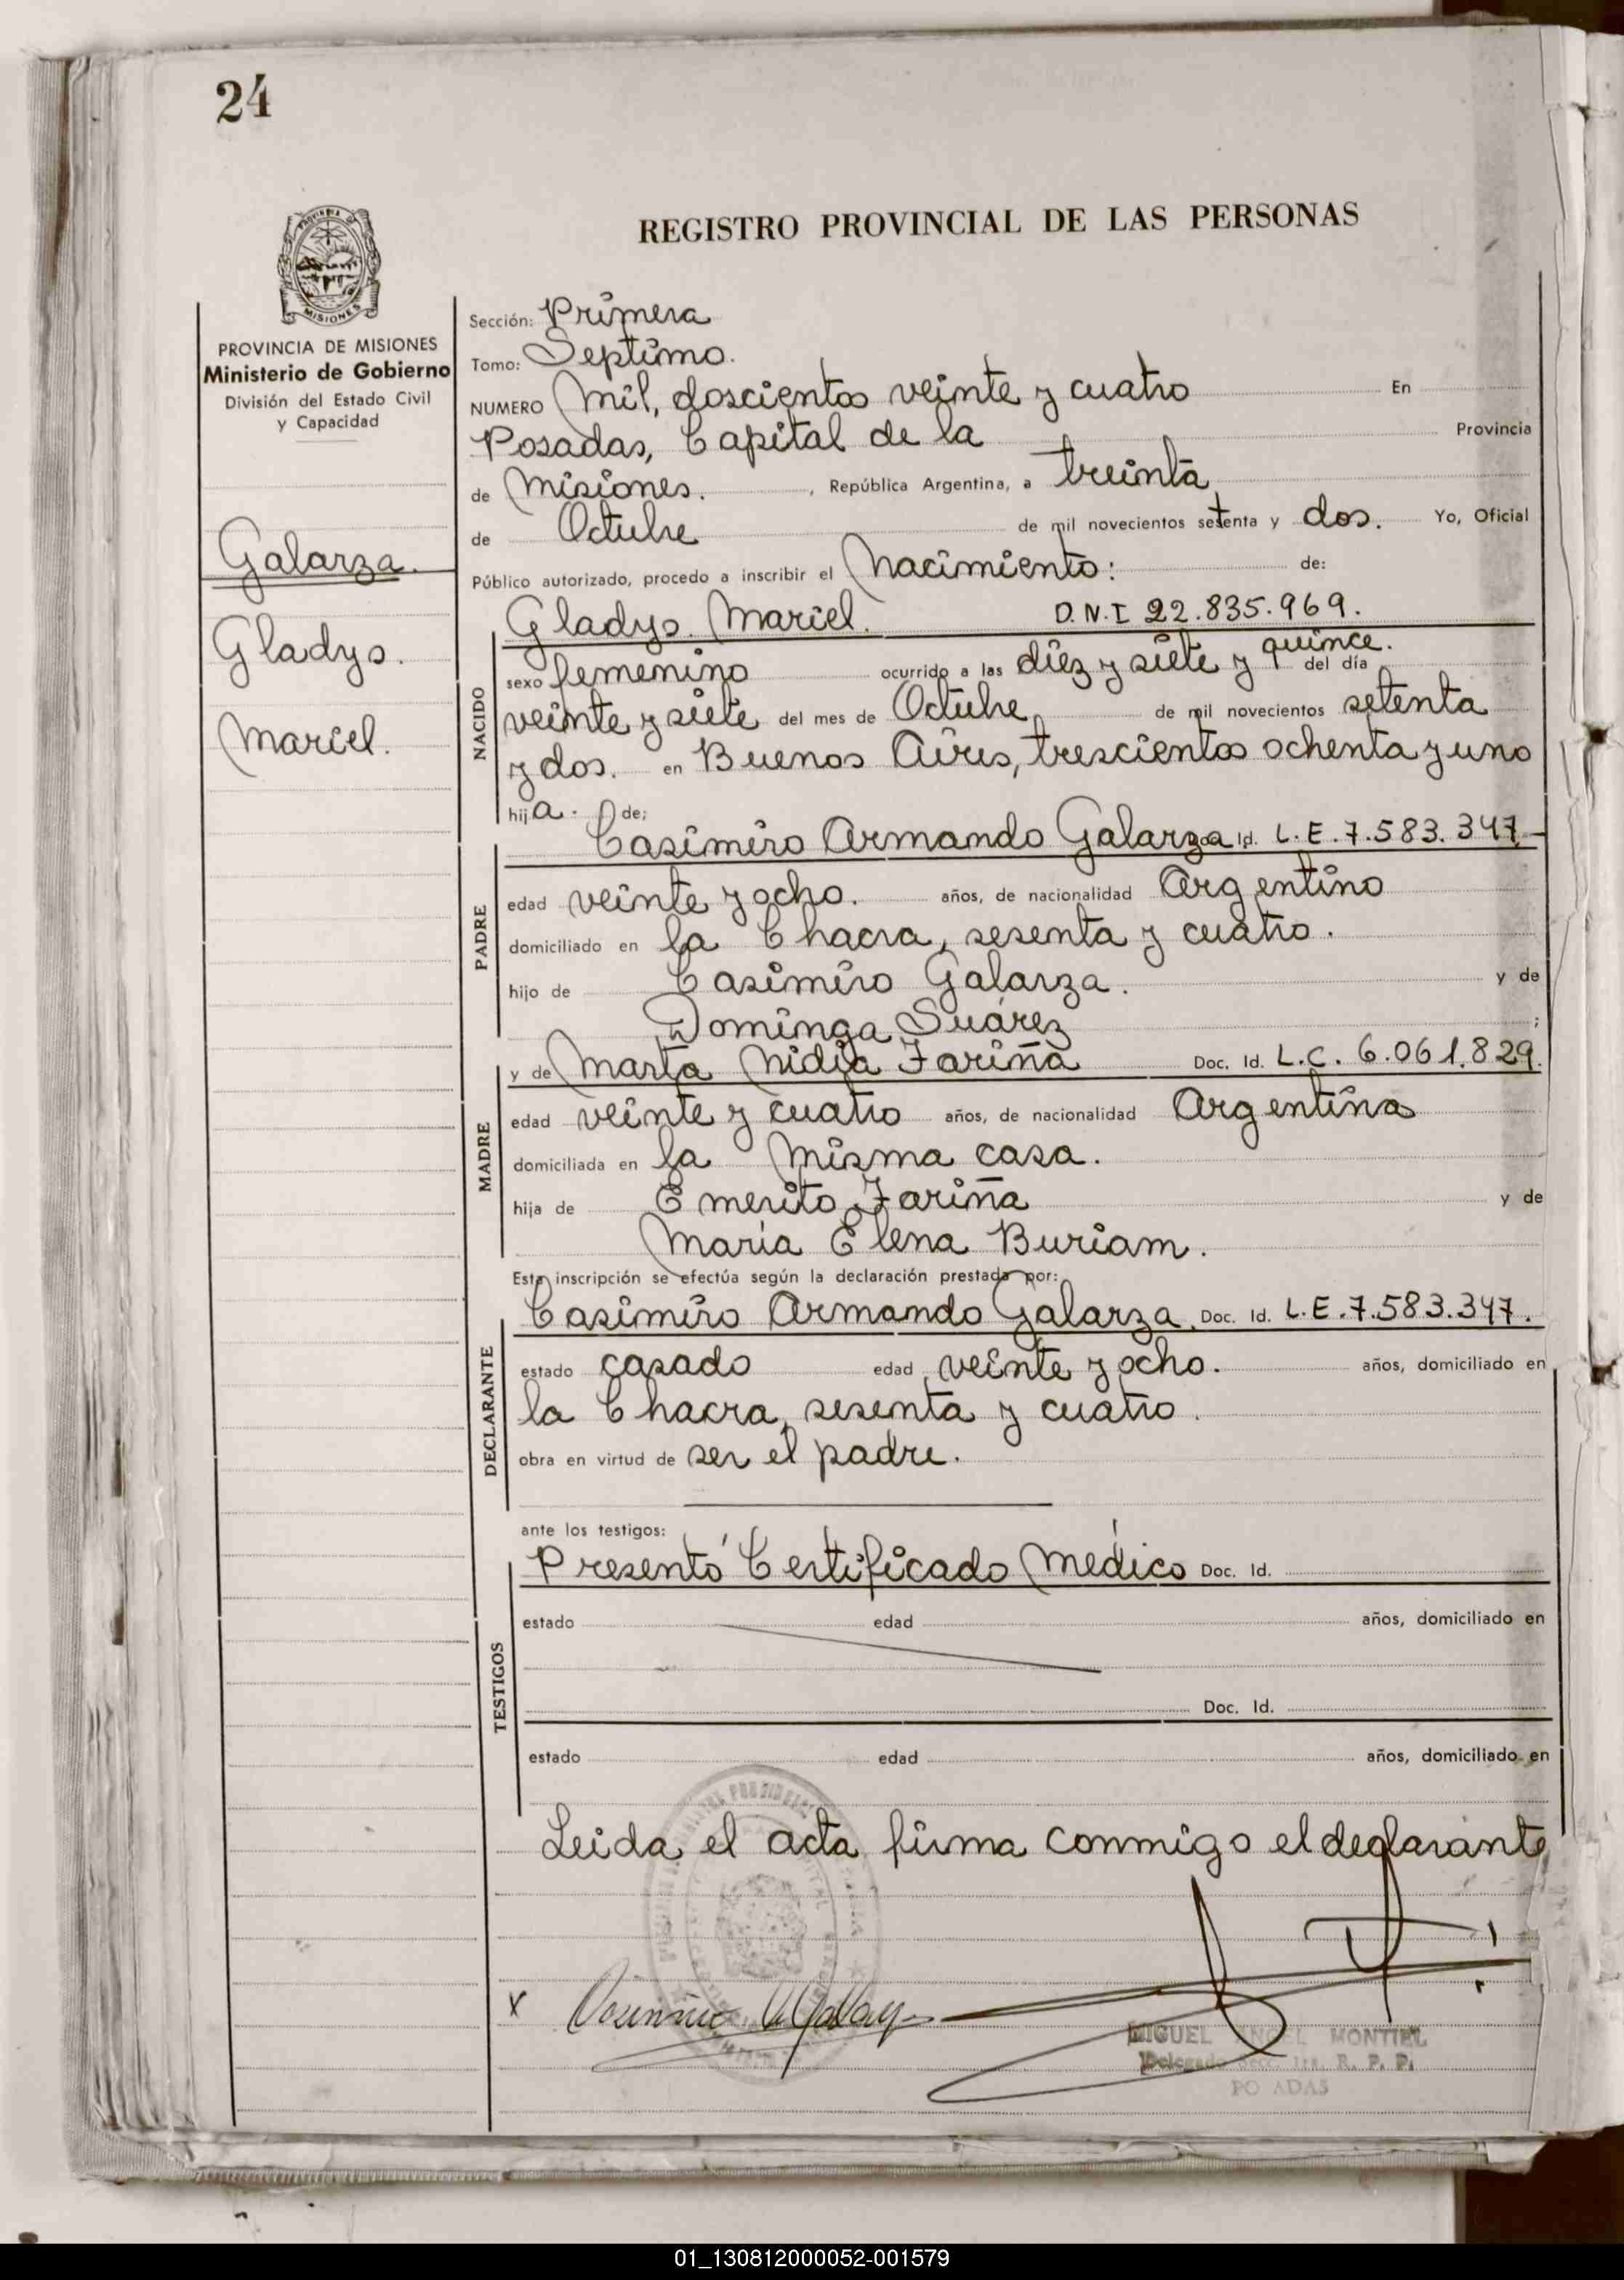 24
REGISTRO PROVINCIAL DE LAS PERSONAS
PROVINCIA DE MISIONES
PROVINCIA DE MISIONES
Ministerio de Gobierno
División del Estado Civil
y Capacidad
Galarza.
Gladys.
Mariel.
Sección: Primera
Tomo: Septimo.
NUMERO Mil, doscientos veinte y cuatro En
Posadas, Capital de la Provincia
de Misiones. , República Argentina, a treinta
de Octubre de mil novecientos setenta y dos. Yo, Oficial
Público autorizado, procedo a inscribir el Nacimiento: de:
Gladys Mariel. D.N.I 22.835.969.
NACIDO
sexo femenino ocurrido a las diez y siete y quince. del día
veinte y siete del mes de Octubre de mil novecientos setenta
y dos. en Buenos Aires, trescientos ochenta y uno
hija. de:
PADRE
Casimiro Armando Galarza Doc. Id. L.E.7.583.347
edad veinte y ocho. años, de nacionalidad Argentino
domiciliado en la Chacra, sesenta y cuatro.
hijo de Casimiro Galarza. y de
Dominga Suárez ;
MADRE
y de Marta Nidia Fariña Doc. Id. L.C. 6.061.829.
edad veinte y cuatro años, de nacionalidad Argentina
domiciliada en la misma casa.
hija de Emerito Fariña y de
María Elena Buriam.
Esta inscripción se efectúa según la declaración prestada por:
DECLARANTE
Casimiro Armando Galarza. Doc. Id. L.E.7.583.347.
estado casado edad veinte y ocho. años, domiciliado en
la Chacra, sesenta y cuatro.
obra en virtud de ser el padre.
ante los testigos:
TESTIGOS
Presentó Certificado Médico Doc. Id.
estado edad años, domiciliado en
Doc. Id.
estado edad años, domiciliado en
Leida el acta firma conmigo el declarante
x Casimiro A Galarza
MIGUEL ANGEL MONTIEL
Delegado Secc. 1ra. R. P. P.
PO ADAS
01_130812000052-001579